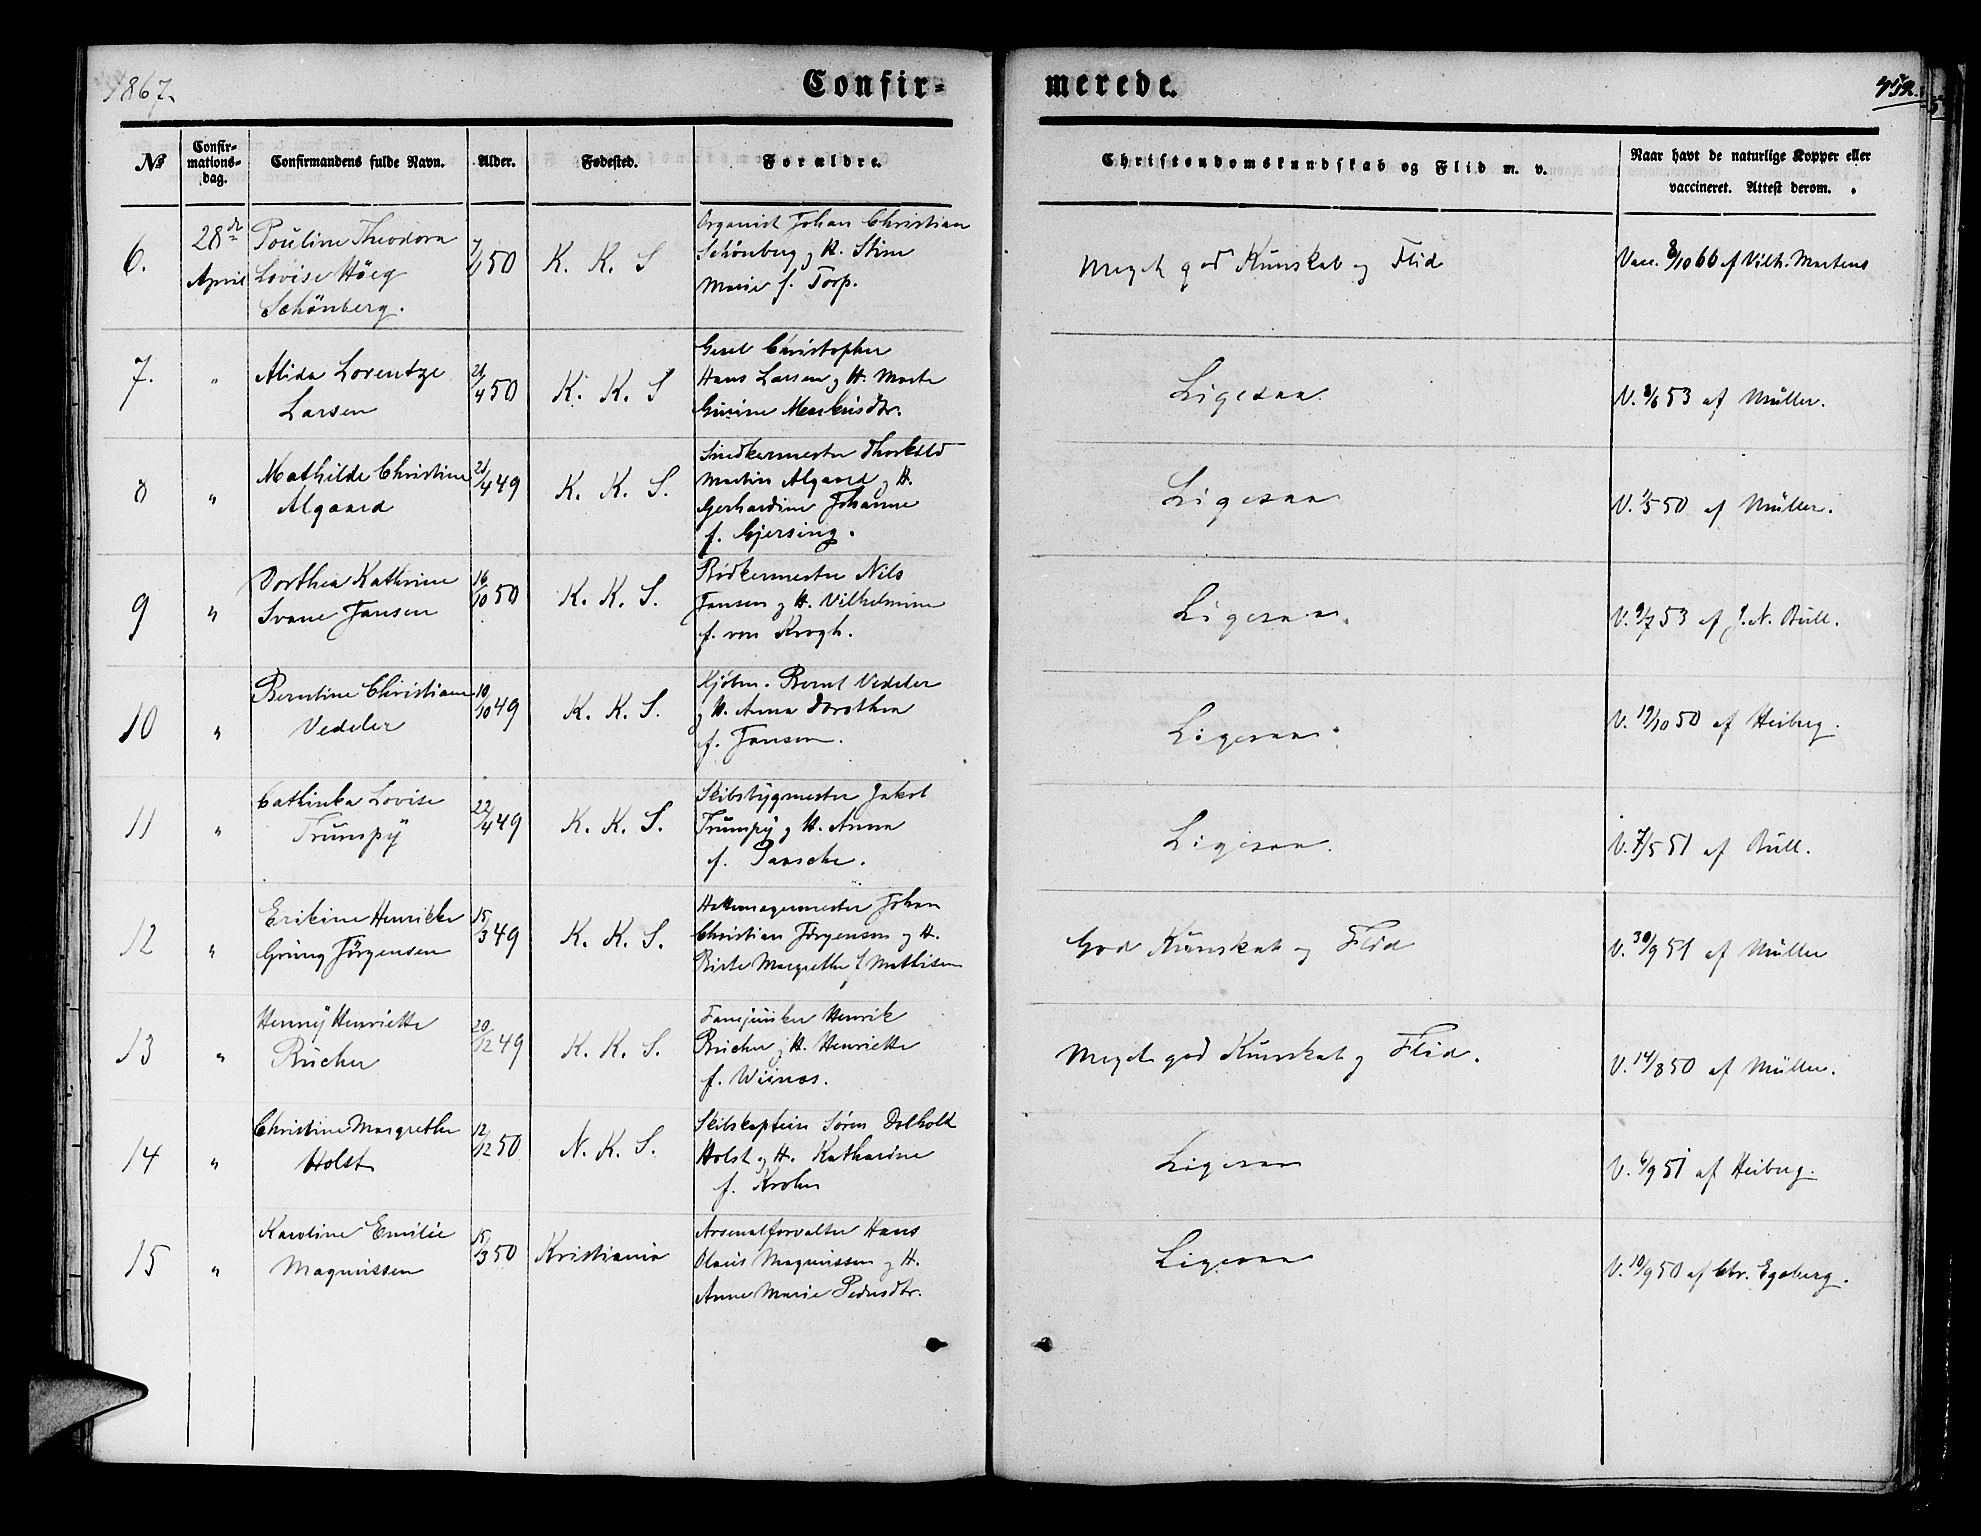 1867.
Confir-
merede.
452.
№
Confir-
mations-
dag.
Confirmandens fulde Navn.
Alder.
Fødested.
Forældre.
Christendomskundskab og Flid m. v.
Naar havt de naturlige Kopper eller
vaccineret. Attest derom.
6.
28de
April
Pouline Theodora
Lovise Höeg
Schönberg.
50
K. K. S
Organist Johan Christian
Schönberg og H. Stine
Marie f. Torp.
Meget god Kunskab og Flid
Vacc. 8/10 66 af Vilh. Martens
7.
"
Alida Lorentze
Larsen
21/4 50
K. K. S
Gesel Christopher
Hans Larsen og H. Marte
Gurine Markusdtr.
Ligesaa
V. 8/6 53 af Müller.
8
"
Mathilde Christine
Algaard
21/4 49
K. K. S.
Snedkermester Thorkild
Martin Algaard og H.
Gerhardine Johanne
f. Gjersing.
Ligesaa
V. 50 af Müller.
9
"
Dorthea Kathrine
Svane Jansen
16/10 50
K. K. S.
Bødkermester Nils
Jansen og H. Vilhelmine
f. von Krogh.
Ligesaa.
V. 9/7 53 af J. N. Bull.
10
"
Berntine Christiane
Vedeler
10/10 49
K. K. S.
Kjøbm. Bernt Vedeler
og H. Anna Dorothea
f. Jansen.
Ligesaa.
V. 19/10 50 af Heiberg.
11
"
Cathinka Lovise
Trumpÿ
22/4 49
K. K. S.
Skibsbygmester Jakob
Trumpÿ og H. Anna
f. Paasche.
Ligesaa.
V. 7/5 51 af Bull.
12
"
Erikine Henrikke
Grüng Jörgensen
15/3 49
K. K. S.
Hattemagermester Johan
Christian Jörgensen og H.
Birte Margrethe f Mathisen
God Kunskab og Flid
V. 30/9 51 af Müller
13
"
Hennÿ Henriette
Bücher
20/12 49
K. K. S.
Fanejunker Henrik
Bücher og H. Henriette
f. Wiinæs.
Meget god Kunskab og Flid.
V. 14/8 50 af Müller.
14
"
Christine Margrethe
Holst
12/12 50
N. K. S.
Skibskaptein Søren Dolholt
Holst og H. Kathardine
f. Krohn
Ligesaa
V. 6/9 51 af Heiberg.
15
"
Karoline Emilie
Magnussen
15/3 50
Kristiania
Arsenalforvalter Hans
Olaus Magnussen og H.
Anne Marie Pedersdtr.
Ligesaa
V. 10/9 50 af Chr. Egeberg.